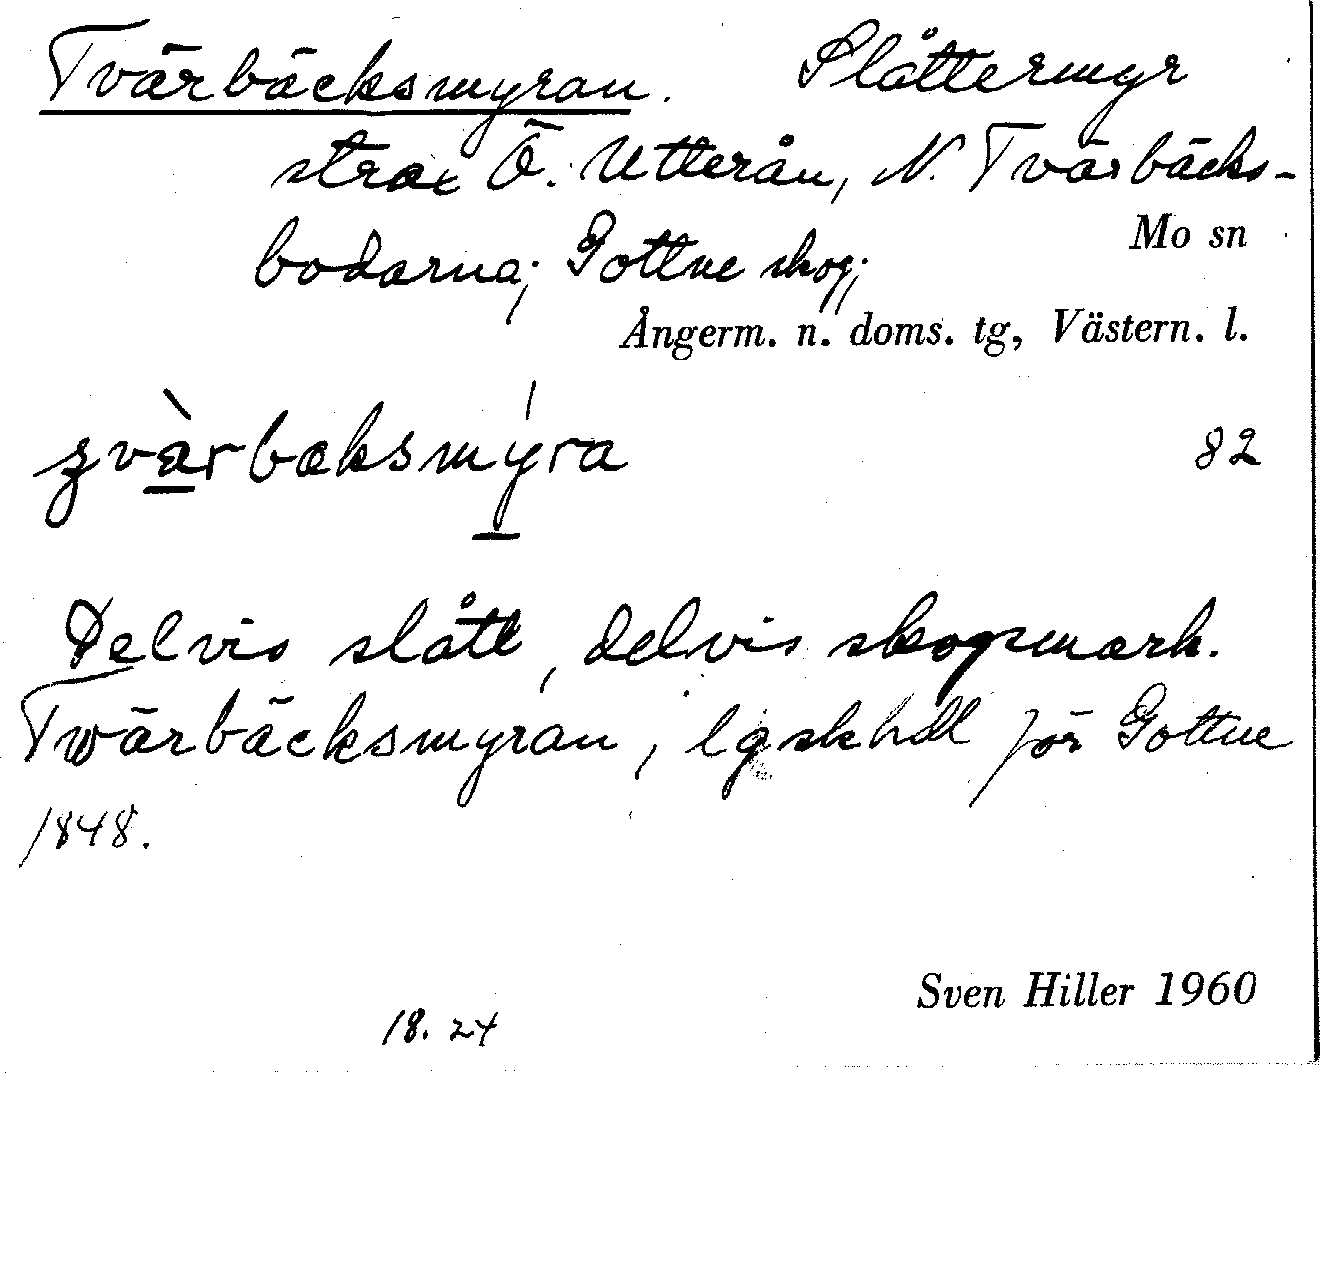 Tvärbäcksmyran. Slåttermyr
strax Ö. Utterån, N. Tvärbäcks-
bodarna; Gottne skog;
Mo sn
Ångerm. n. doms. tg, Västern. l.
82
Delvis slått, delvis skogsmark.
Twärbäcksmyran, lgskhdl för Gottne
1848.
Sven Hiller 1960
18. 24